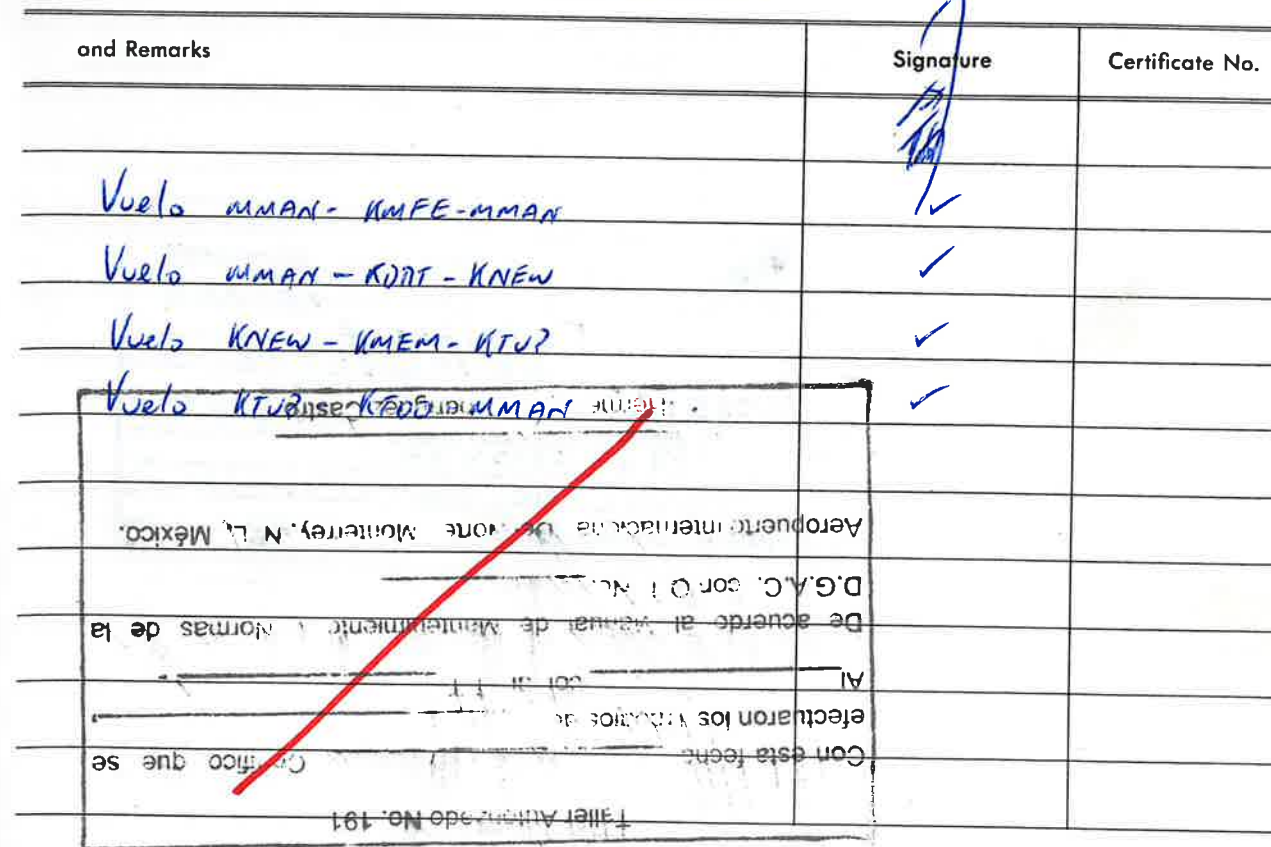 and Remarks Signature Certificate No.
Vuelo MMAN - KMFE - MMAN
Vuelo MMAN - KDRT - KNEW
Vuelo KNEW - KMEM -
Vuelo MMAN
Taller Autorizado No. 191
Con esta fecha Certifico que se
efectuaron los trabajos de
Al con
De acuerdo al Manual de Mantenimiento y Normas de la
D.G.A.C. con O T No.
Aeropuerto Internacional Del Norte Monterrey, N L, México.